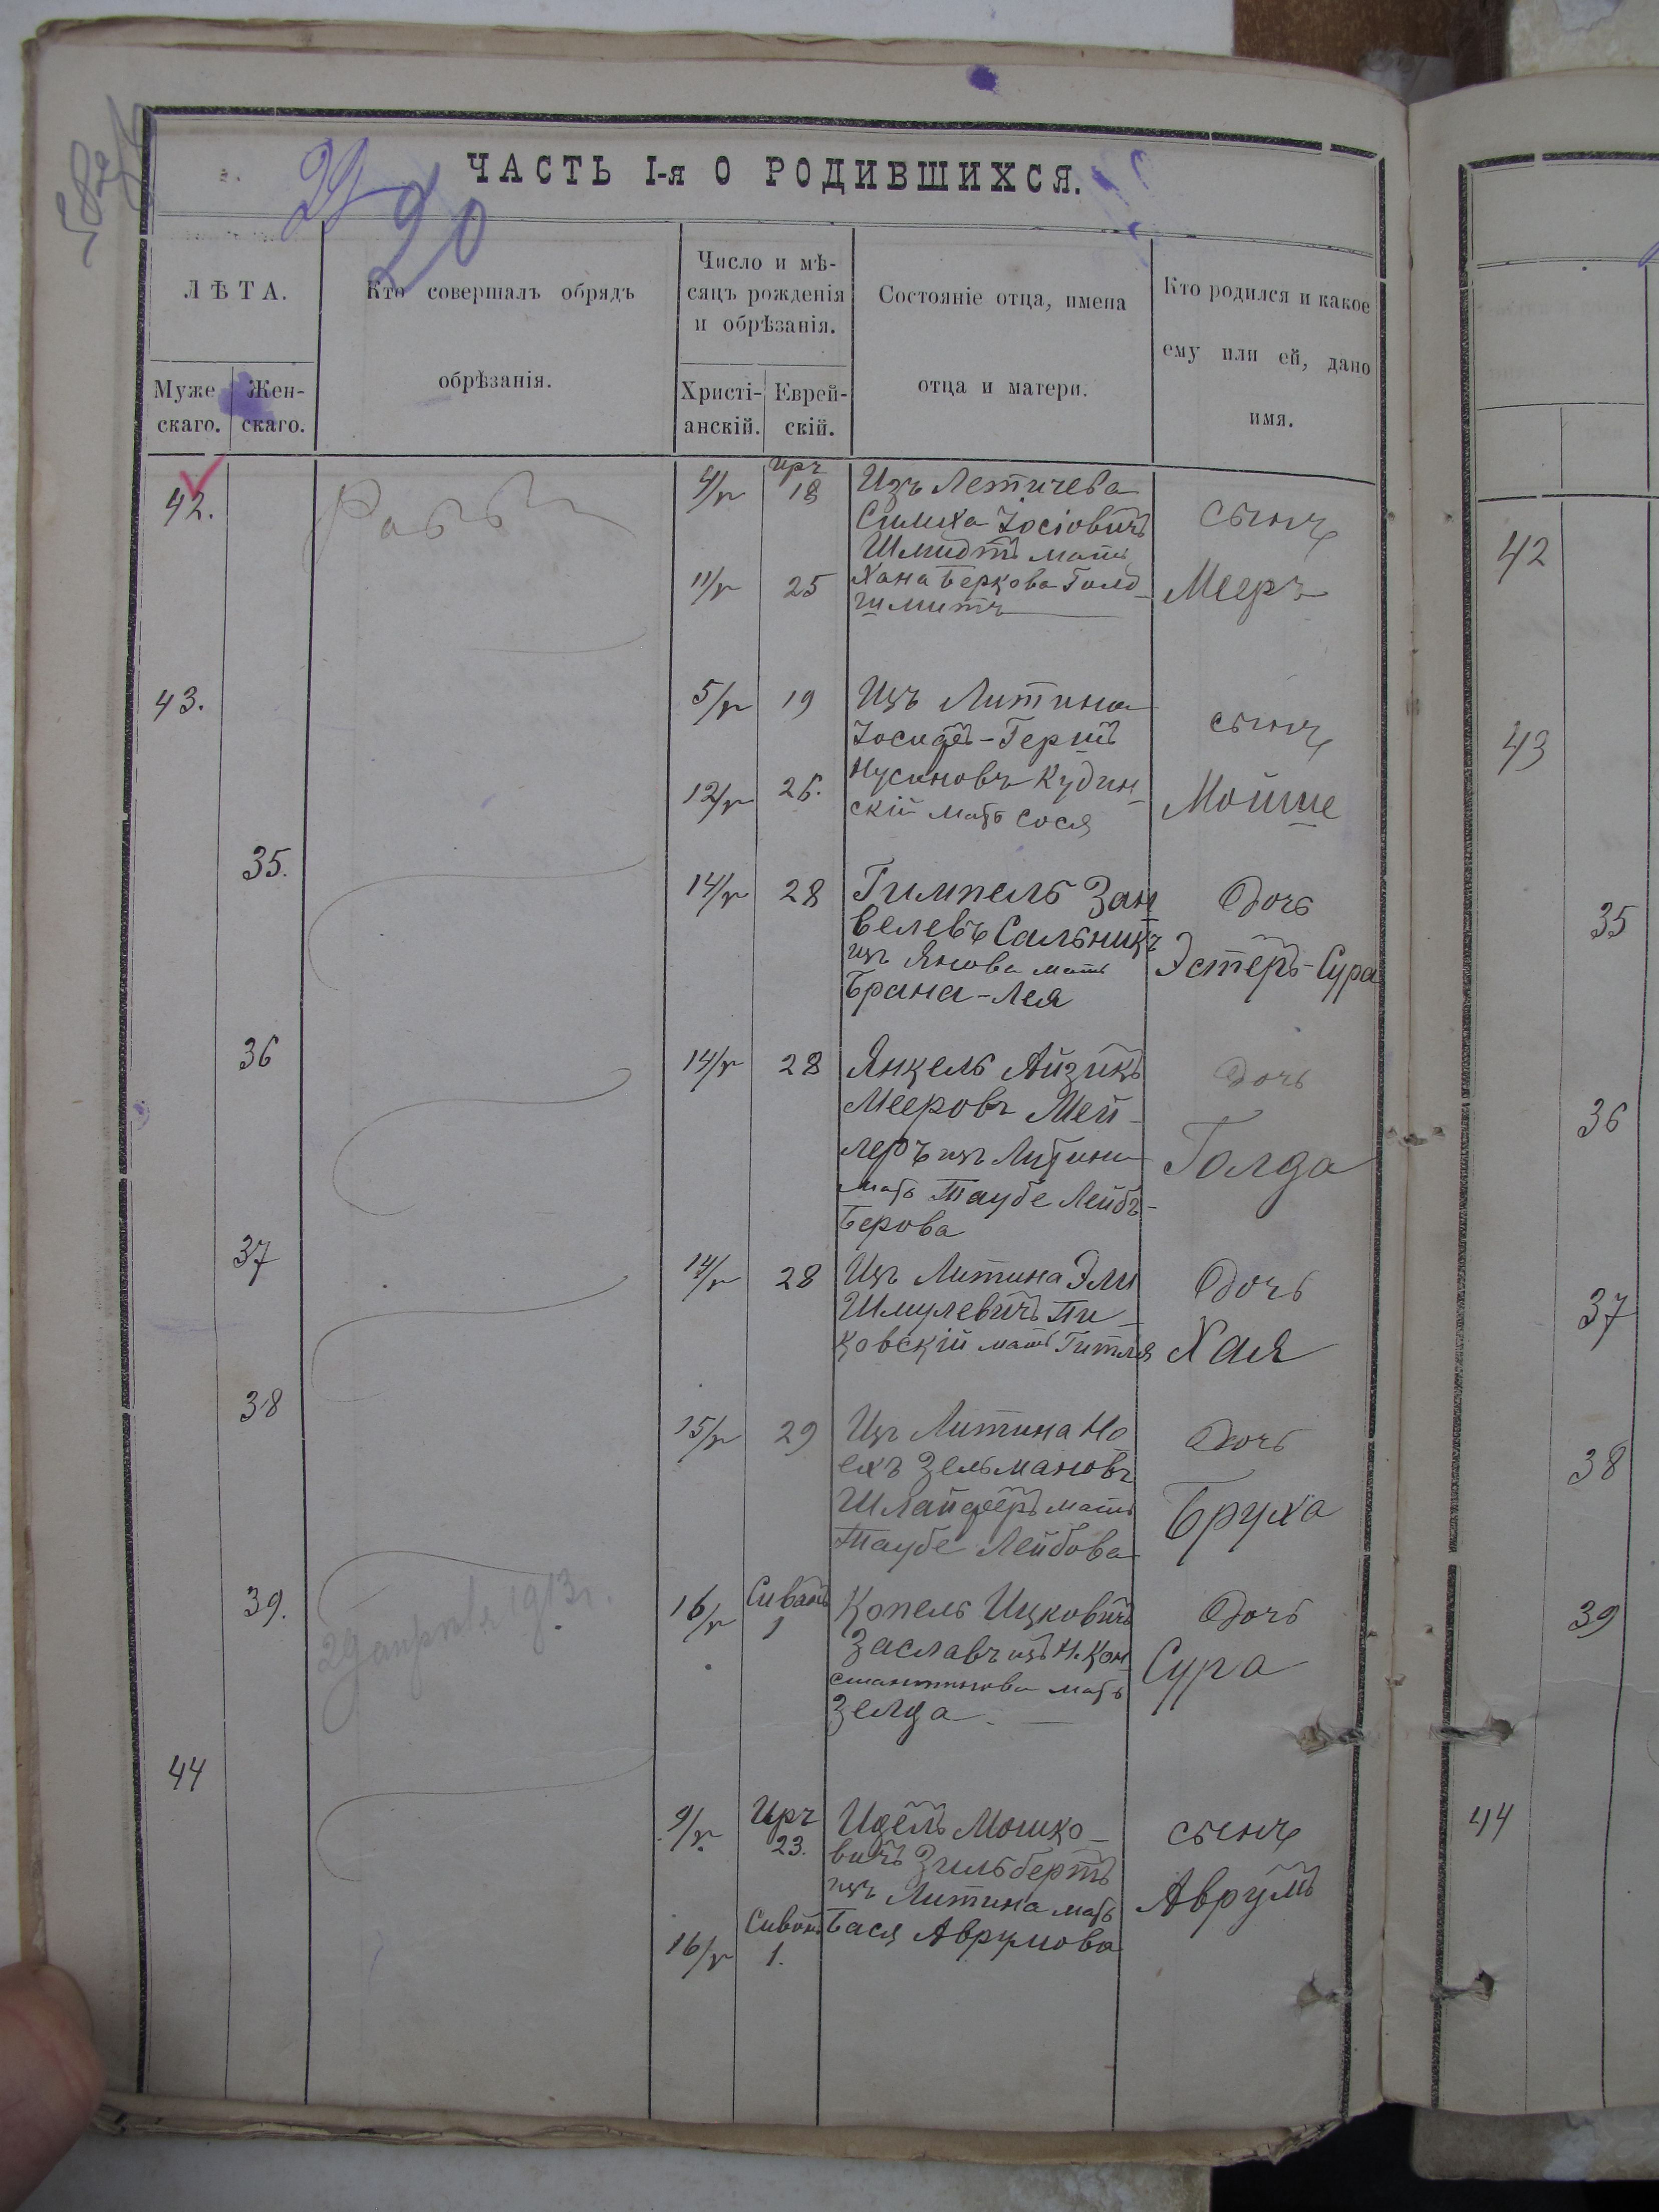 ЧАСТЬ I-я О РОДИВШИХСЯ.
20
ЛѢТА.
Муже
скаго.
Жен-
скаго.
Кто совершалъ обрядъ
обрѣзанія.
Число и мѣ-
сяцъ рожденія
и обрѣзанія.
Христі-
анскій.
Еврей-
скій.
Состояніе отца, имена
отца и матери.
Кто родился и какое
ему или ей, дано
имя.
42.
4/V
Иръ
18
11/V
25
Изъ Летичева
Симха Іосіовичъ
Шмидтъ мать
Хана Беркова Голд-
шмитъ
сынъ
Мееръ
42
43.
5/V
19
12/V
26.
Изъ Литина
Іосифъ-Гершъ
Нусиновъ Кудин-
скій мать Сося
сынъ
Мойше
43
35.
14/V
28
Гимпель Зан
велевъ Сальникъ
изъ Янова мать
Брана-Лея
дочь
Эстеръ-Сура
35
36
14/V
28
Янкель Айзикъ
Мееровъ Мей-
леръ изъ Литина
мать Таубе Лейбъ-
Берова
дочь
Голда
36
37
14/V
28
Изъ Литина Эли
Шмулевичъ Пи-
ковскій мать Гитля
дочь
Хая
37
38
15/V
29
Изъ Литина Но
ехъ Зельмановъ
Шлайферъ мать
Таубе Лейбова
дочь
Бруха
38
39.
29 апреля 1913 г.
16/V
Сиванъ
1
Копель Ицковичъ
Заславъ изъ Н. Кон
стантинова мать
Зелда
дочь
Сура
39
44
9/V
Иръ
23.
16/V
Сиванъ
1.
Идель Мошко-
вичъ Зильбертъ
изъ Литина мать
Бася Аврумова
сынъ
Аврумъ
44